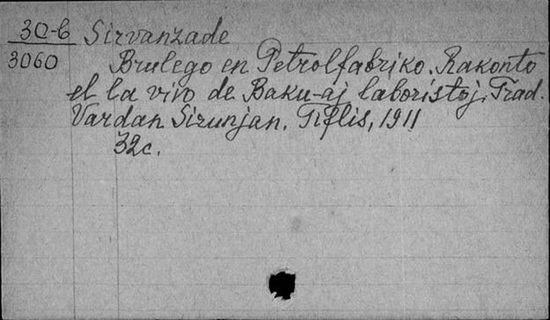 30-b Sirvanzade
3060 Brulego en Petrolfabriko. Rakonto
el la vivo de Baku-aj laboristoj. Trad.
Vardan Sizunjan. Tiflis, 1911
32c.